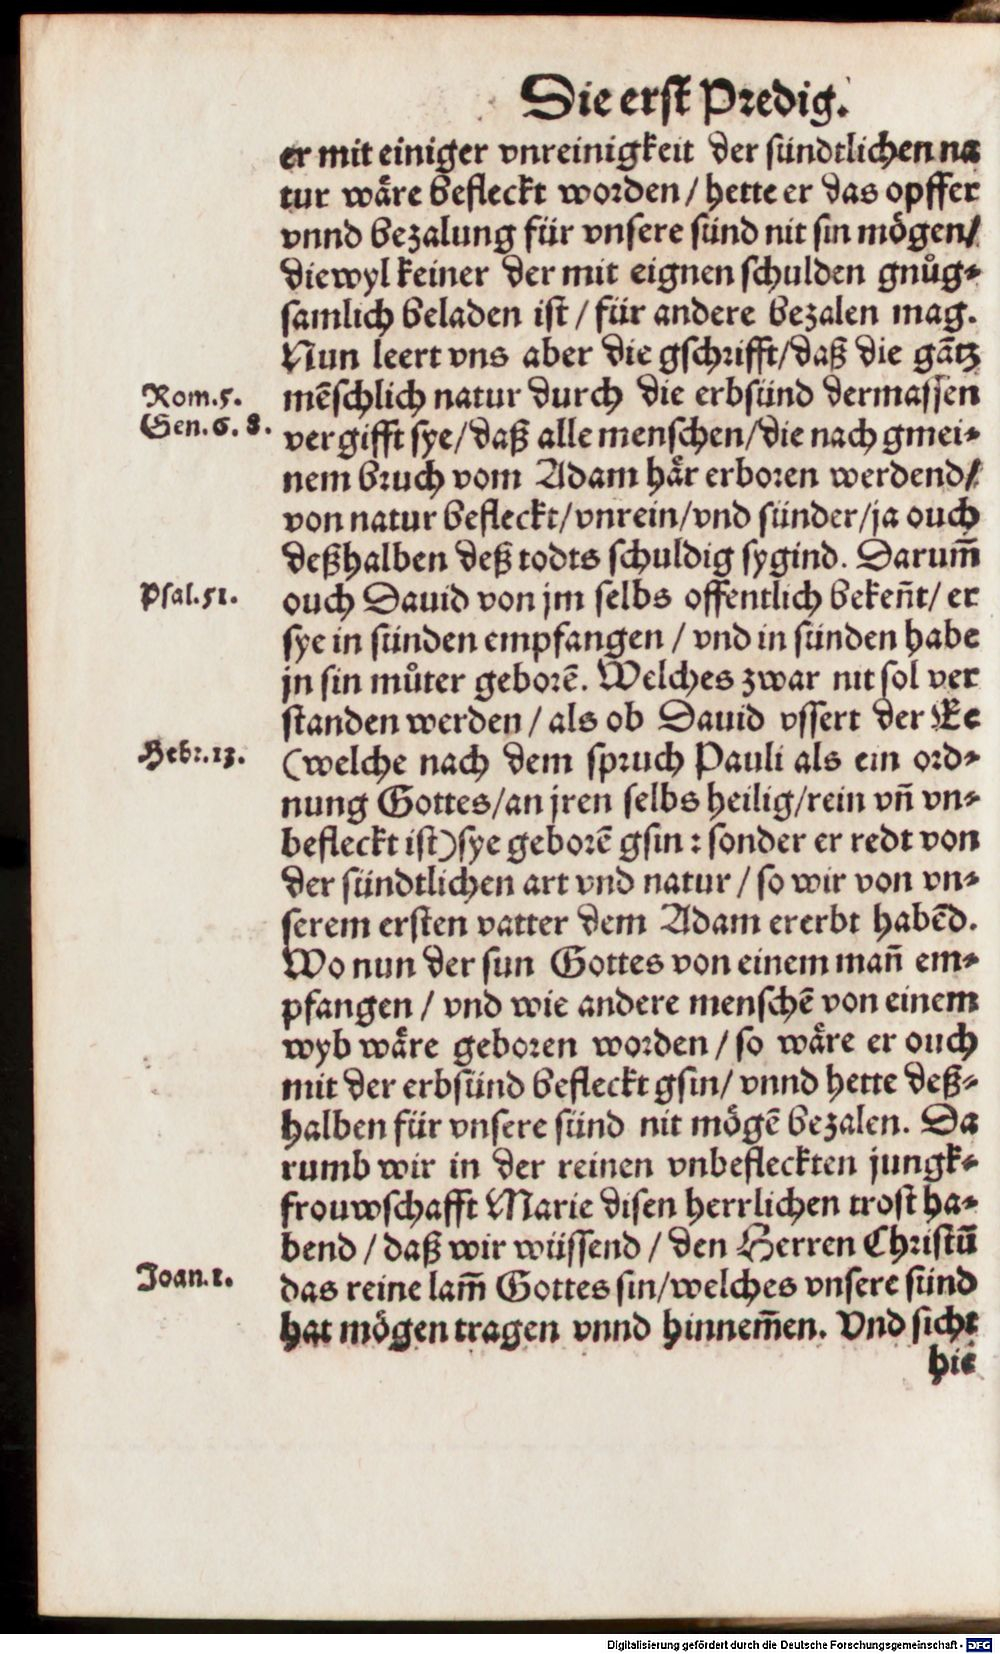 Die erst Predig.
er mit einiger vnreinigkeit der sündtlichen na
tur wäre befleckt worden / hette er das opffer
vnnd bezalung für vnsere sünd nit sin mögen /
diewyl keiner der mit eignen schulden gnůg⸗
samlich beladen ist / für andere bezalen mag.
Nun leert vns aber die gschrifft / daß die gãtz
Rom. 5.
mẽschlich natur durch die erbsünd dermassen
Gen. 6. 8.
vergifft sye / daß alle menschen / die nach gmei⸗
nem bruch vom Adam här erboren werdend /
von natur befleckt / vnrein / vnd sünder / ja ouch
deßhalben deß todts schuldig sygind. Darum̃
Psal. 51.
ouch Dauid von jm selbs offentlich bekeñt / er
sye in sünden empfangen / vnd in sünden habe
jn sin můter geborẽ. Welches zwar nit sol ver
standen werden / als ob Dauid vssert der Ee
Hebr. 13.
(welche nach dem spruch Pauli als ein ord⸗
nung Gottes / an jren selbs heilig / rein vñ vn⸗
befleckt ist) sye geborẽ gsin : sonder er redt von
der sündtlichen art vnd natur / so wir von vn⸗
serem ersten vatter dem Adam ererbt habẽd.
Wo nun der sun Gottes von einem mañ em⸗
pfangen / vnd wie andere menschẽ von einem
wyb wäre geboren worden / so wäre er ouch
mit der erbsünd befleckt gsin / vnnd hette deß⸗
halben für vnsere sünd nit mögẽ bezalen. Da
rumb wir in der reinen vnbefleckten jungk⸗
frouwschafft Marie disen herrlichen trost ha⸗
bend / daß wir wüssend / den Herren Christũ
Joan. 1.
das reine lam̃ Gottes sin / welches vnsere sünd
hat mögen tragen vnnd hinnem̃en. Vnd sicht
hie
Digitalisierung gefördert durch die Deutsche Forschungsgemeinschaft - DFG